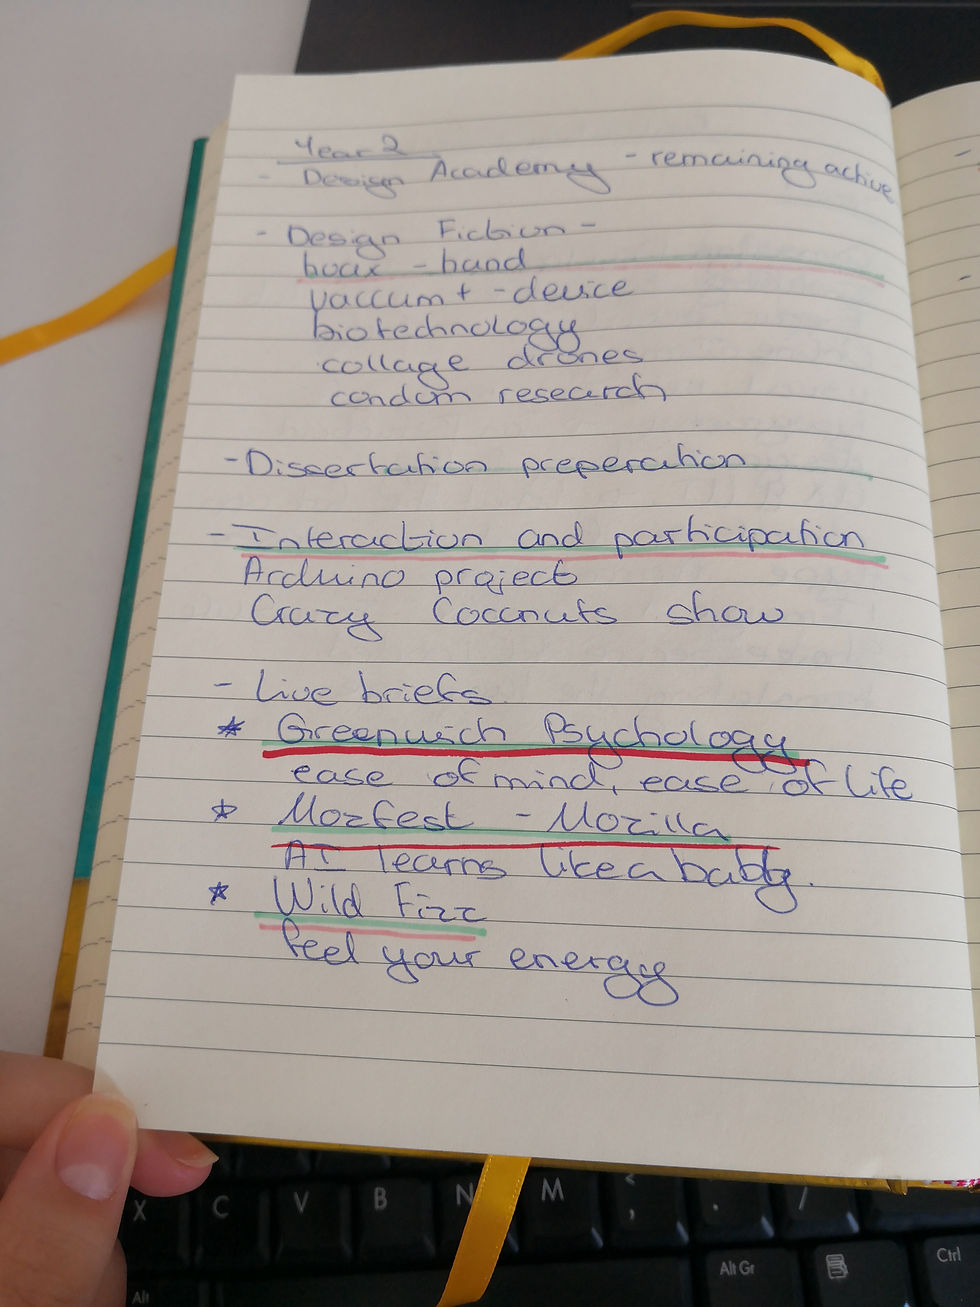 Year 2
- Design Academy - remaining active
- Design Fiction -
hoax - hand
vaccum + - device
biotechnology
collage drones
condom research
- Dissertation preperation
- Interaction and participation
Arduino project
Crazy Coconuts show
- Live briefs
* Greenwich Psychology
ease of mind, ease of life
* Mozfest - Mozilla
AI learns like a baby.
* Wild Fizz
feel your energy
X C V B N M < , . /
Alt Alt Gr Ctrl